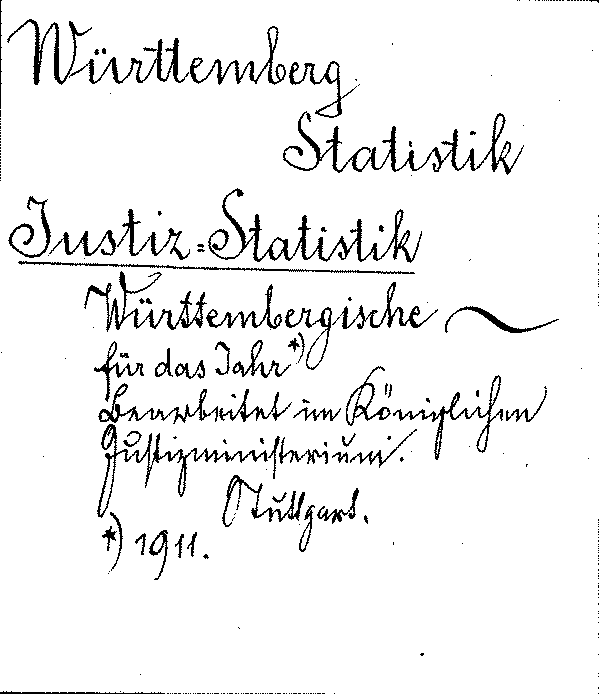 Württemberg
Statistik
Justiz=Statistik
Württembergische ~
für das Jahr *)
Bearbeitet im Königlichen
Justizministerium.
Stuttgart.
*) 1911.